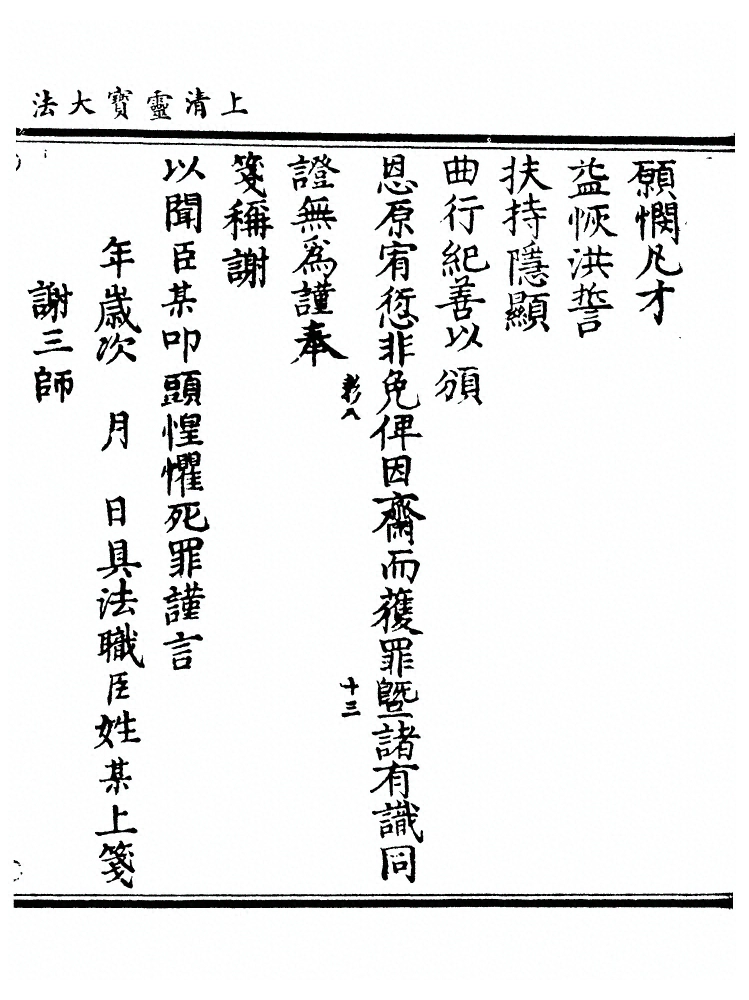 上清靈寳大法
願憫凡才
益恢洪誓
扶持隱顯
曲行紀善以頒
恩原宥愆非免俾因齋而獲罪暨諸有識同
證無為謹奉
彰八
十三
箋稱謝
以聞臣某叩頭惶懼死罪謹言
年歲次 月 日具法職臣姓某上箋
謝三師